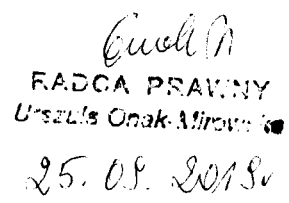 RADCA PRAWNY
Urszula Onak-Mirowska
25. 09. 2019r